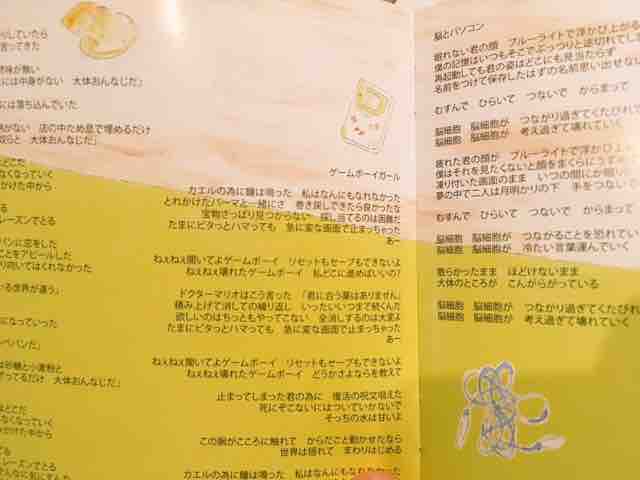 していたら
言ってきた
意味が無い
には中身がない　大体おんなじだ」
には落ち込んでいた
がない　店の中ため息で埋めるだけ
奴らと　大体おんなじだ」
とどこだ
なくなっていく
かけた中から
レーズンでとる
パンに恋をした
ことをアピールした
り向いてはくれなかった
いる世界が違う」
になっていった
ペパンだ」
は砂糖と小麦粉と
ってるだけ　大体おんなじだ」
はどこだ
なくなっていく
かけた中から
レーズンでとる
ゲームボーイガール
カエルの為に鐘は鳴った　私はなんにもなれなかった
とれかけたパーマと一緒にさ　巻き戻しできたら良かったな
宝物さっぱり見つからない　探し当てるのは困難だ
たまにピタッとハマっても　急に変な画面で止まっちゃった
あー
ねぇねぇ聞いてよゲームボーイ　リセットもセーブもできないよ
ねぇねぇ壊れたゲームボーイ　私どこに進めばいいの?
ドクターマリオはこう言った　「君に合う薬はありません」
積み上げて消しての繰り返し　いったいいつまで続くんだ
欲しいのはちっともやってこない　全消しするのは大変よ
たまにピタッとハマっても　急に変な画面で止まっちゃった
あー
ねぇねぇ聞いてよゲームボーイ　リセットもセーブもできないよ
ねぇねぇ壊れたゲームボーイ　どうかさよならを教えて
止まってしまった君の為に　復活の呪文唱えた
死にぞこないにはついていかないで
そっちの水は甘いよ
この腕がこころに触れて　からだごと動かせたなら
世界は揺れて　まわりはじめる
カエルの為に鐘は鳴った　私はなんにもなれなかった
脳とパソコン
眠れない君の顔　ブルーライトで浮かび上がる
僕の記憶はいつもそこでぷっつりと途切れてしま
再起動しても君の姿はどこにも見当たらず
名前をつけて保存したはずの名前思い出せない
むすんで　ひらいて　つないで　からまって
脳細胞　脳細胞が　つながり過ぎてくたびれ
脳細胞　脳細胞が　考え過ぎて壊れていく
疲れた君の顔が　ブルーライトで浮かび上
僕はそれを見たくないと顔をまくらにうずめ
凍り付いた画面のまま　いつの間にか眠り
夢の中で二人は月明かりの下　手をつないで
むすんで　ひらいて　つないで　からまって
脳細胞　脳細胞が　つながることを恐れてい
脳細胞　脳細胞が　冷たい言葉運んでいく
散らかったまま　ほどけないまま
大体のところが　こんがらがっている
脳細胞　脳細胞が　つながり過ぎてくたびれ
脳細胞　脳細胞が　考え過ぎて壊れていく